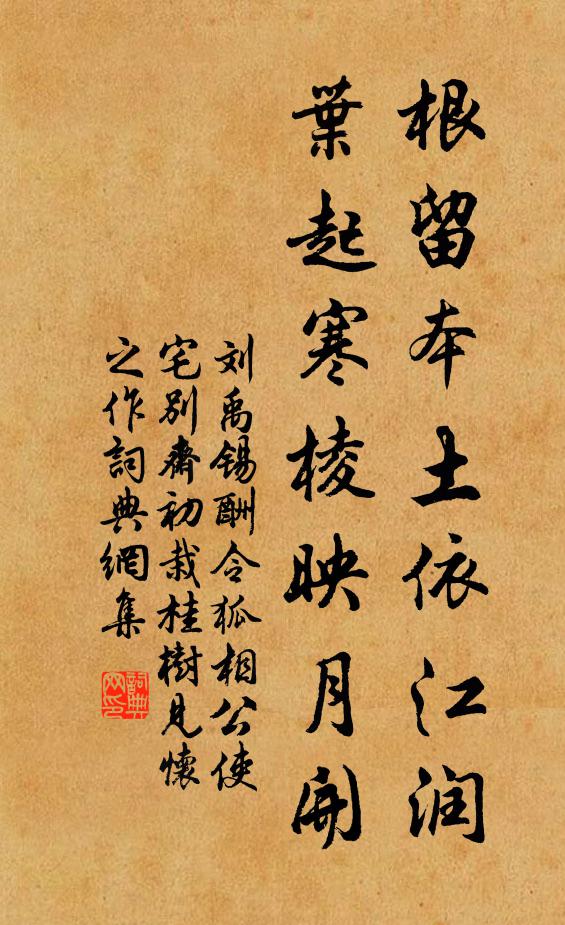 根留本土依江润
葉起寒棱映月開
刘禹锡酬令狐相公使
宅別齋初栽桂樹見懷
之作詞典網集
詞典
网印